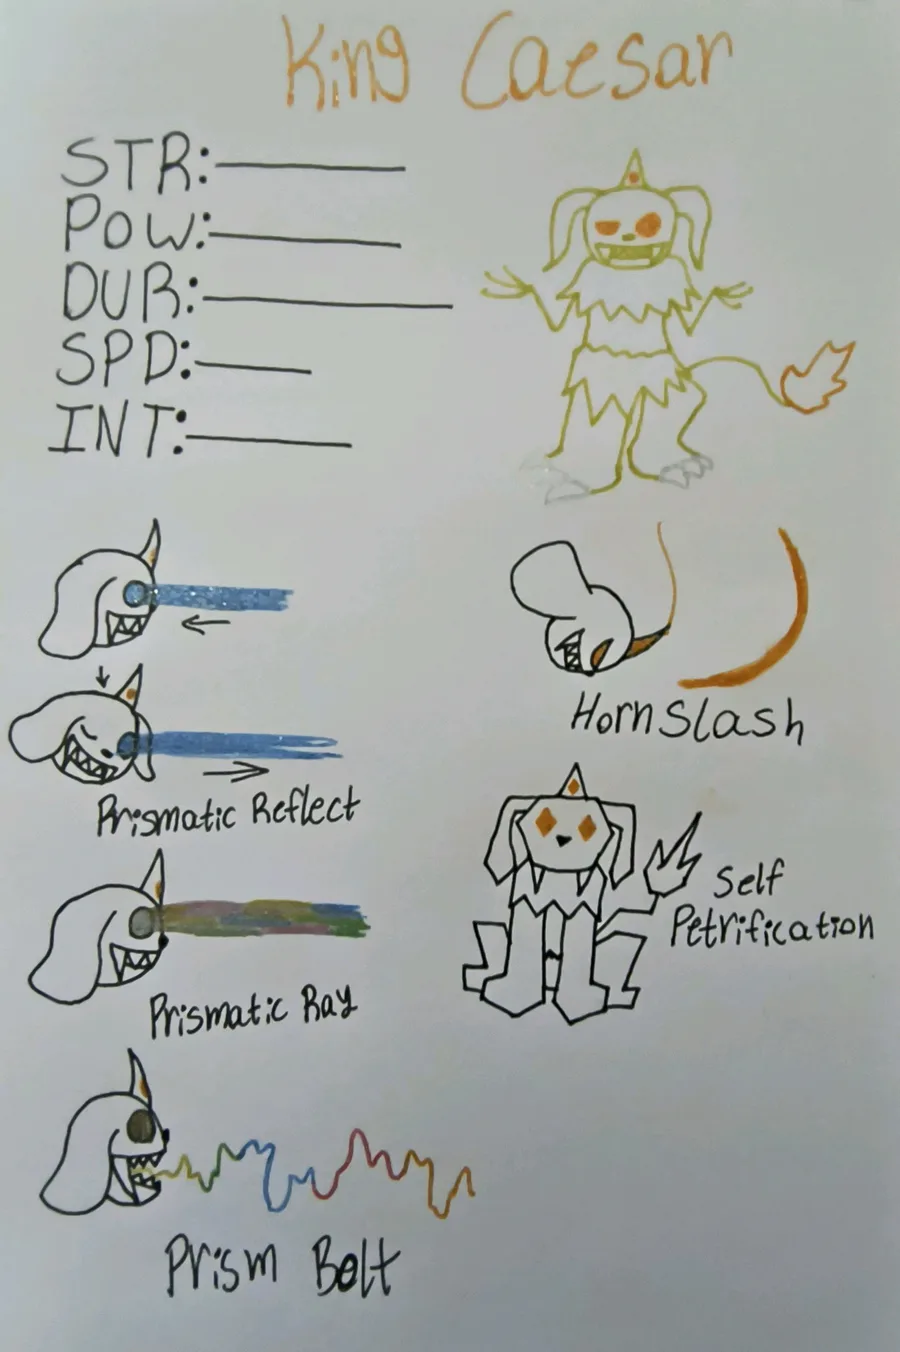 King Caesar
STR:
POW:
DUR:
SPD:
INT:
Prismatic Reflect
Horn Slash
Self
Petrification
Prismatic Ray
Prism Bolt